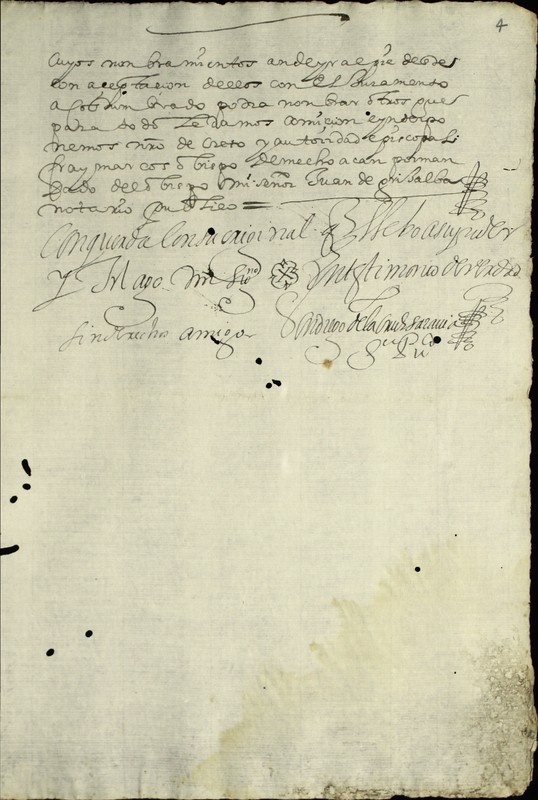 4
cuyos nonbramientos an de yr al pie deste
con aceptacion dellos con el Juramento
acostunbrado podra nonbrar otros que
para todo le damos comision e ynterpo
nemos nro decreto y autoridad episcopal
fray marcos obispo de mechoacan por man
dado del obispo mi señor Juan de grisalba
notario pu^co
Concuerda con su original el llebo a su poder
Y hago mi sig^no en testimonio de verdad
sin derecho amigo Rodrigo de la cruz sarauia